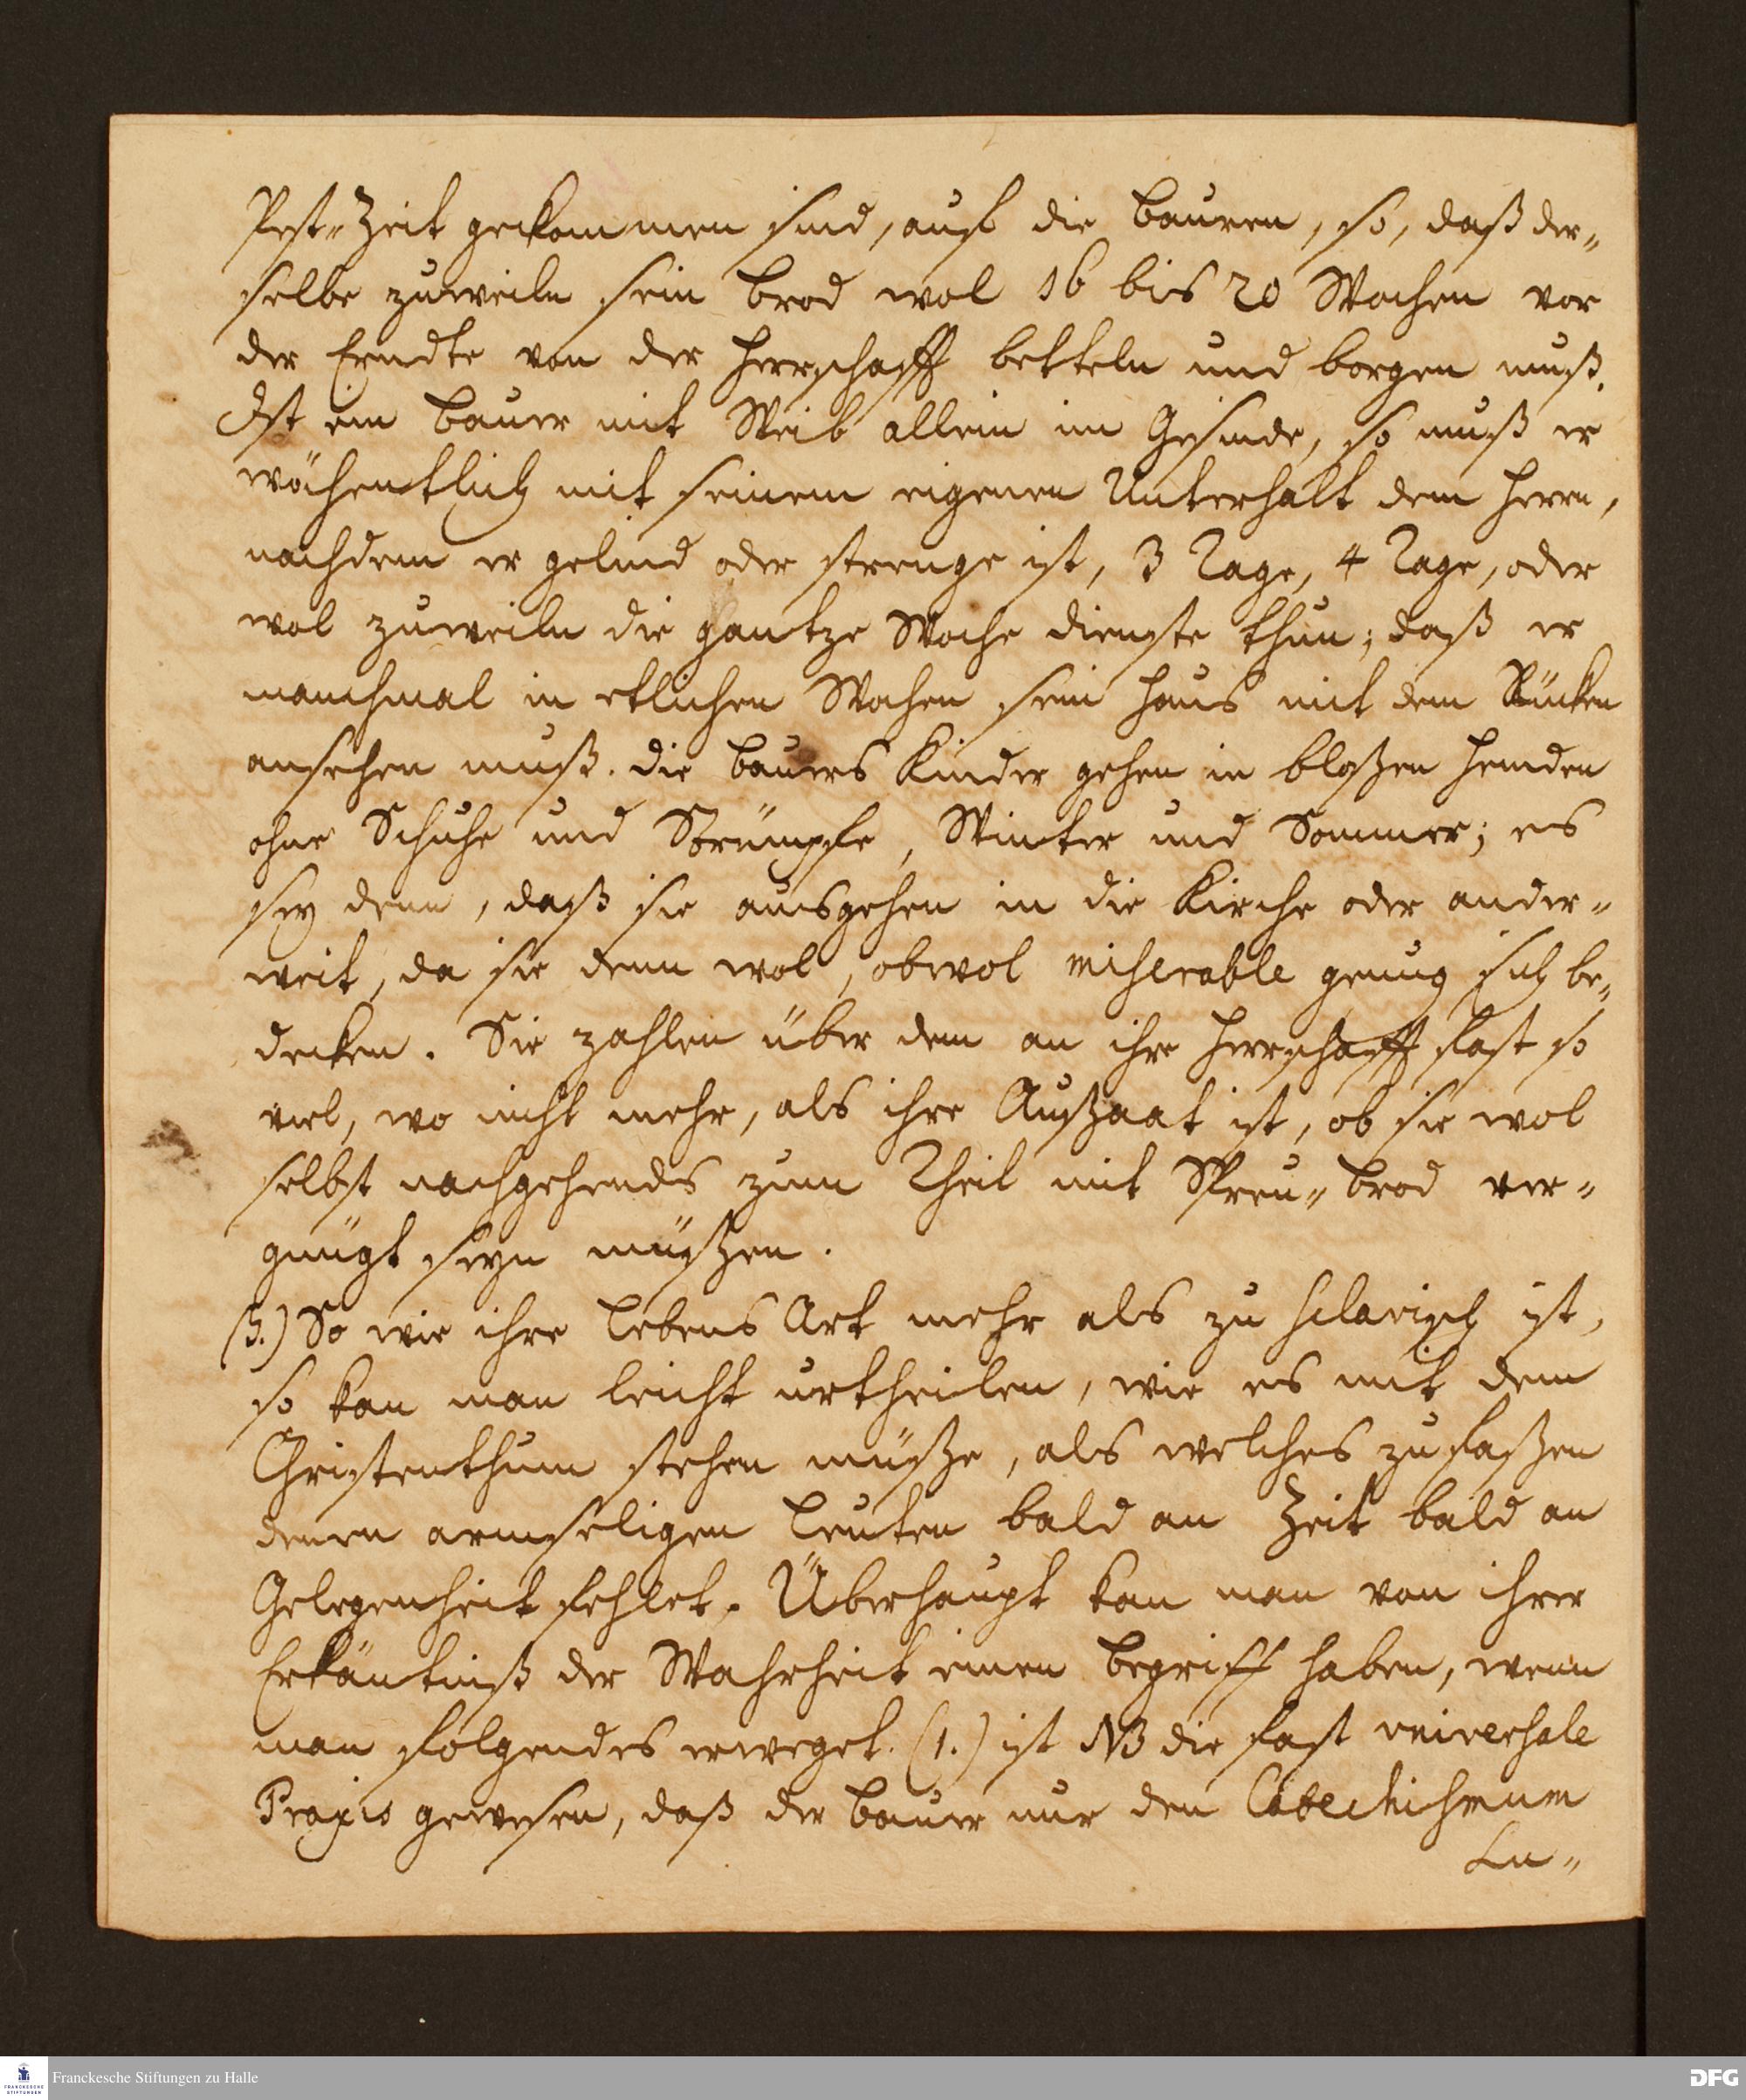 Pest-Zeit gekommen sind, auf die Bauren, so, daß der-
selbe zuweiln sein Brod wol 16 bis 20 Wochen vor
der Erndte von der Herrschafft betteln und borgen muß.
Ist ein Bauer mit Weib allein im Gesinde, so muß er
wöchentlich mit seinem eigenen Unterhalt dem Herrn,
nachdem er gelind oder strenge ist, 3 Tage, 4 Tage, oder
wol zuweiln die gantze Woche Dienste thun; daß er
manchmal in etlichen Wochen sein Haus mit dem Rücken
ansehen muß. Die Bauers Kinder gehen in bloßen Hemden
ohne Schuhe und Strümpfe, Winter und Sommer; es
sey denn, daß sie ausgehen in die Kirche oder ander-
weit, da sie denn wol, obwol miserable genug sich be-
decken. Sie zahlen über dem an ihre Herrschafft fast so
viel, wo nicht mehr, als ihre Außaat ist, ob sie wol
selbst nachgehends zum Theil mit Spreu-Brod ver-
gnügt seyn müßen.
(3.) So wie ihre Lebens Art mehr als zu sclavisch ist,
so kan man leicht urtheilen, wie es mit dem
Christenthum stehen müße, als welches zu faßen
denen armseligen Leuten bald an Zeit bald an
Gelegenheit fehlet. Überhaupt kan man von ihrer
Erkäntniß der Wahrheit einen Begriff haben, wenn
man folgendes erweget. (1.) ist NB die fast universale
Praxis gewesen, daß der Bauer nur den Catechismum
Lu-
Franckesche Stiftungen zu Halle
FRANCKESCHE
STIFTUNGEN
DFG